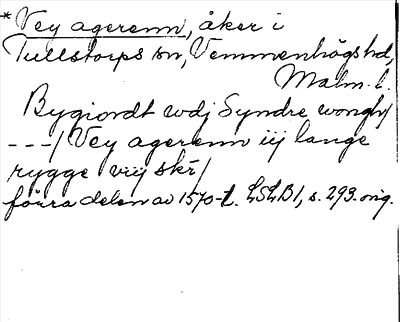 *Vey agerenn, åker i
Tullstorps sn, Vemmenhögs hd,
Malm. l.
Bygiordt wdj Syndre wongh/
---/ Vey agerenn iij lange
rygge viij skr/
förra delen av 1570-t. LSLB1, s. 293. orig.